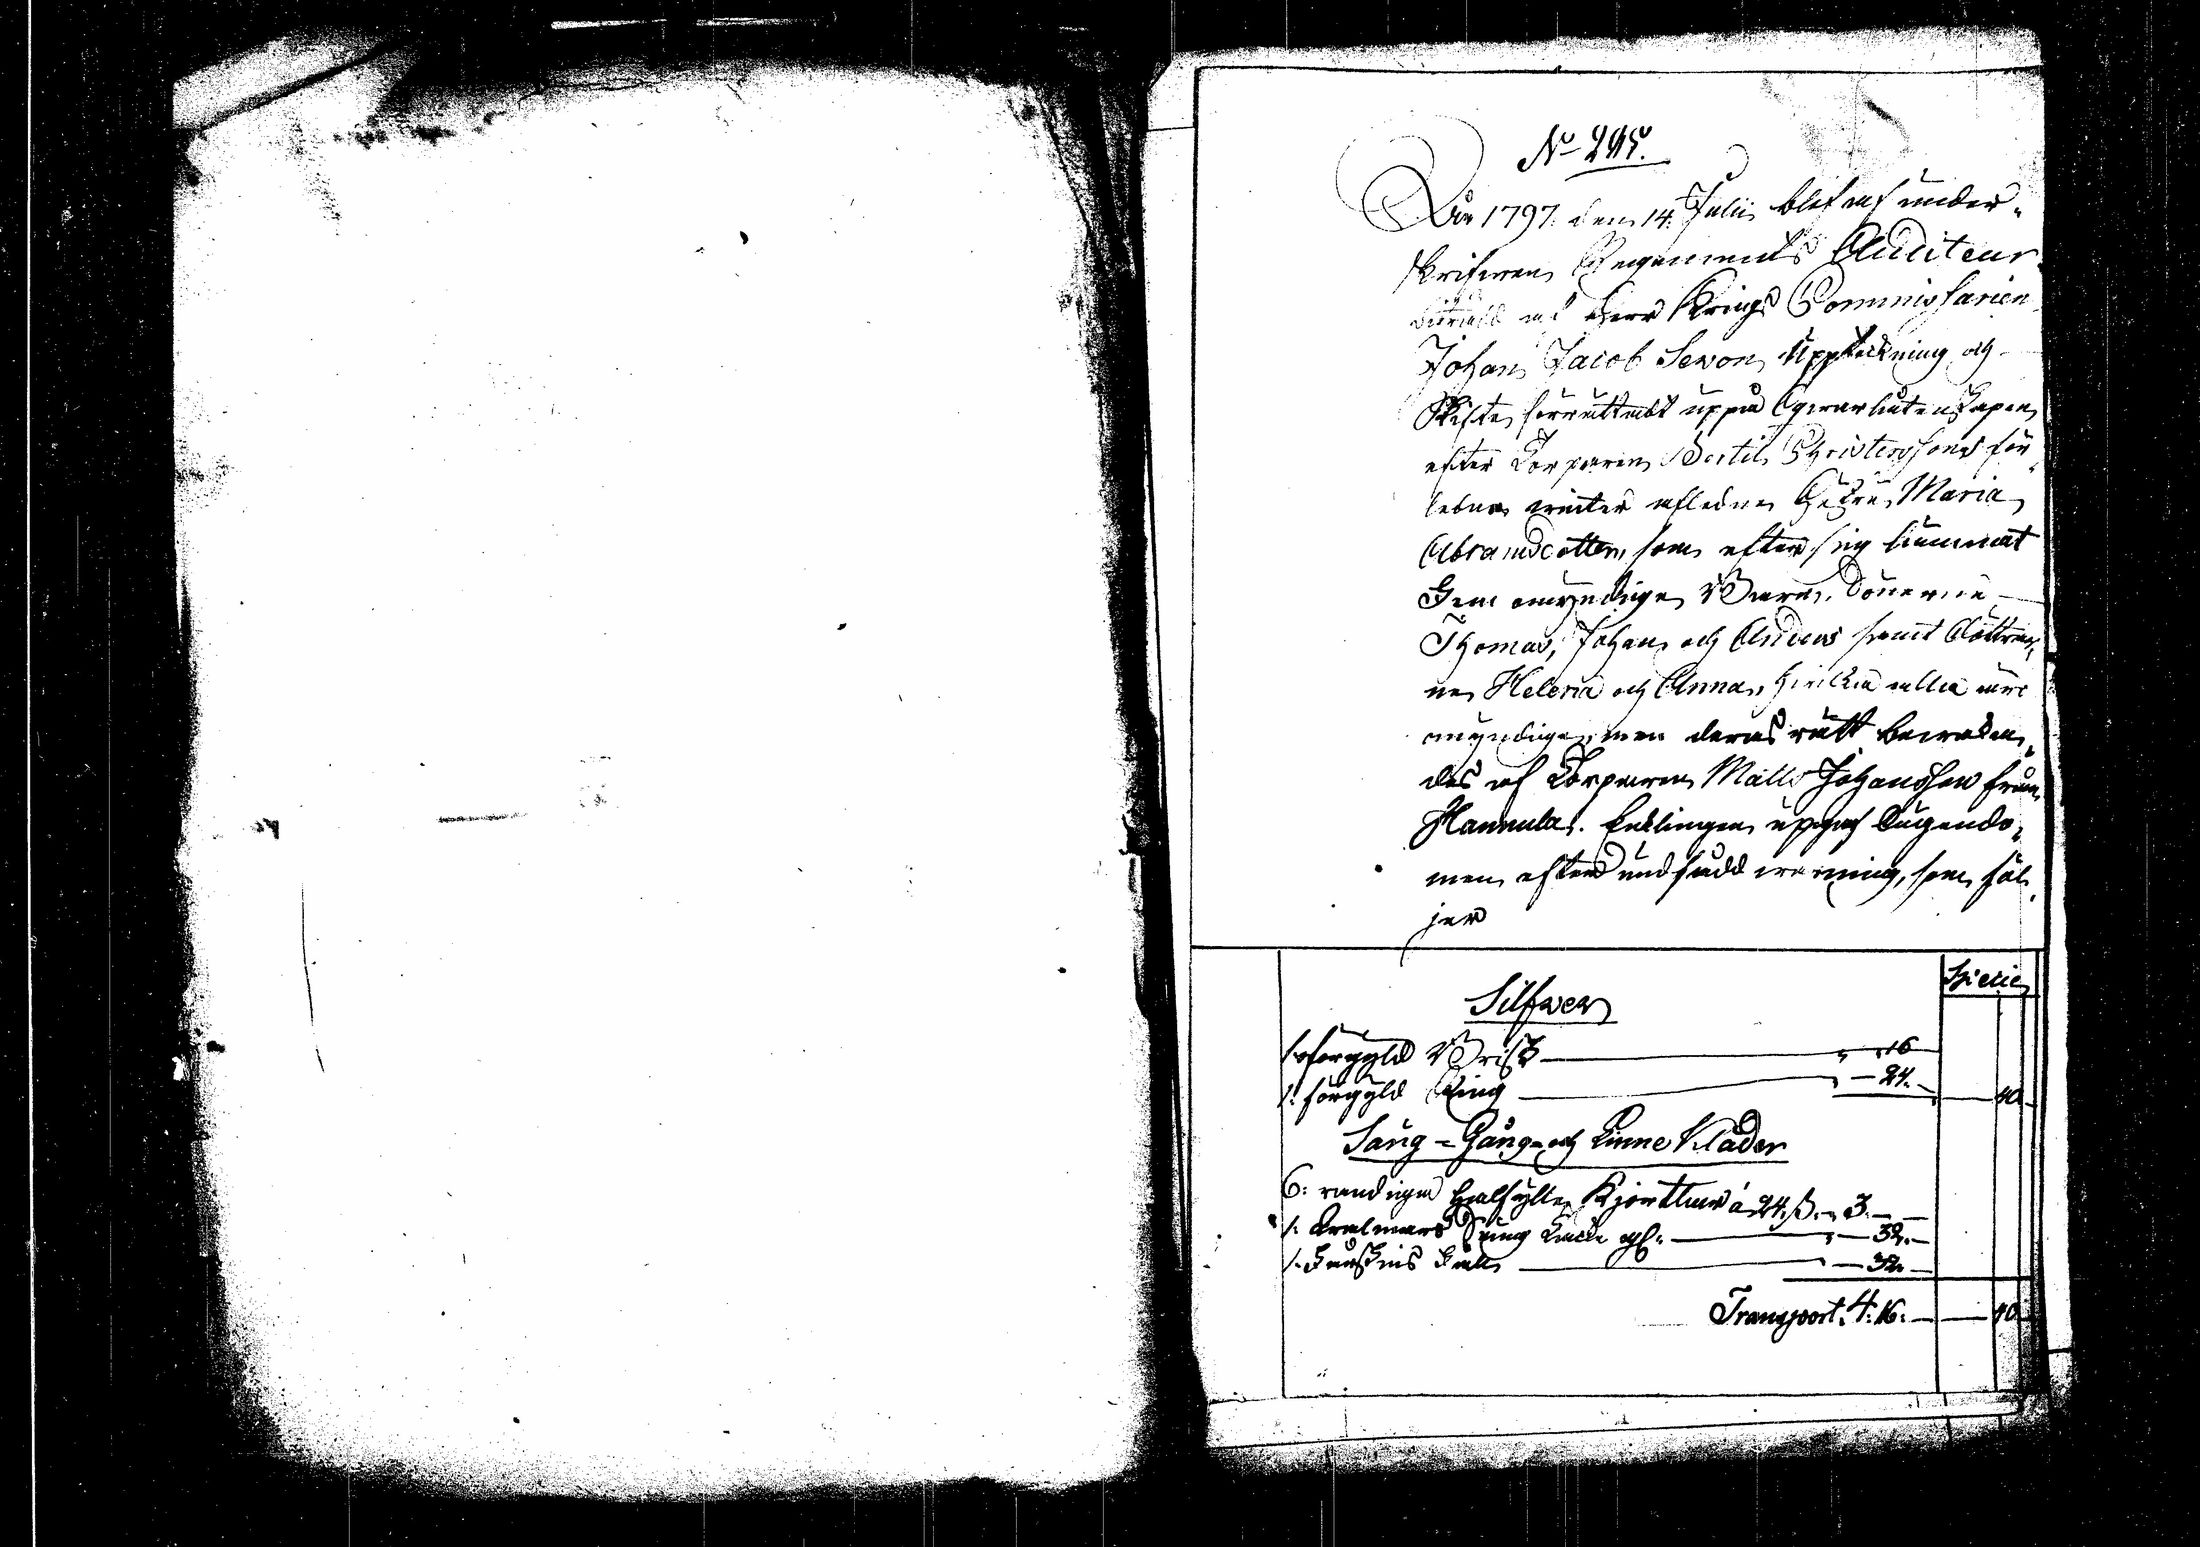 No 295.
År 1797. den 14. Julii blef af under-
skrifven Regements Auditeur
biträdd af Herr Krigs Commissarien
Johan Jacob Sevon, Uppteckning och
Skifte förrättadt uppå Qvarlåtenskapen
efter Torparen Bertil Christerssons för-
ledne winter afledne Hustru Maria
Abramsdotter, som efter sig lämnat
Fem omyndige Barn, Sönerne
Thomas, Johan och Anders samt Döttrar-
ne Helena och Anna, hvilka alla äro
omyndige, men deras rätt bevaka-
des af Torparen Matts Johansson från
Hannula. Enklingen uppgaf Ägendo-
men efter undfådd varning, som föl-
jer
Silfwer
1. förgyld Brisk — " 16
1. förgyld Ring — " 24. — 40.
Säng- Gång- och Linne Kläder
6: randiga halfylle Kjortlar à 24 ß. " 3. —
1. Säng — " 32. —
1. — " 32. —
Transport. 4. 16. — 40.